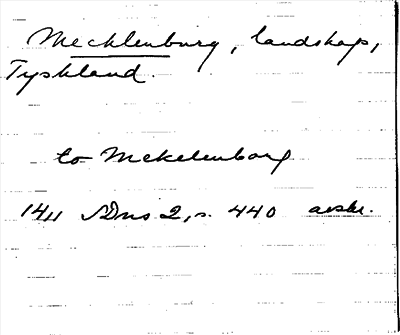 Mecklenburg, landskap,
Tyskland.
to Mekelenborg
1411 SDns 2, s. 440 avskr.